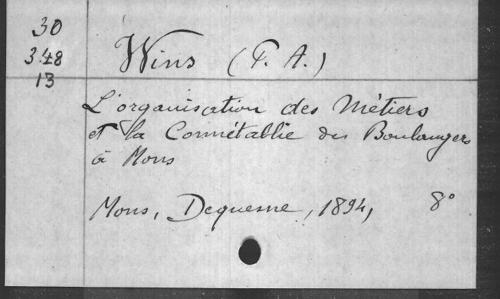 30
348
13
Wins (P. A.)
L'organisation des Métiers
et la Connétablie des Boulangers
à Mons
Mons, Dequesne, 1894, 8°